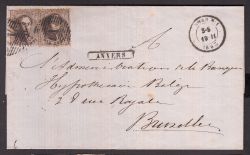 ANVERS
A
L'Administration de la Banque
Hypothécaire Belge
2 Rue Royale
Bruxelles